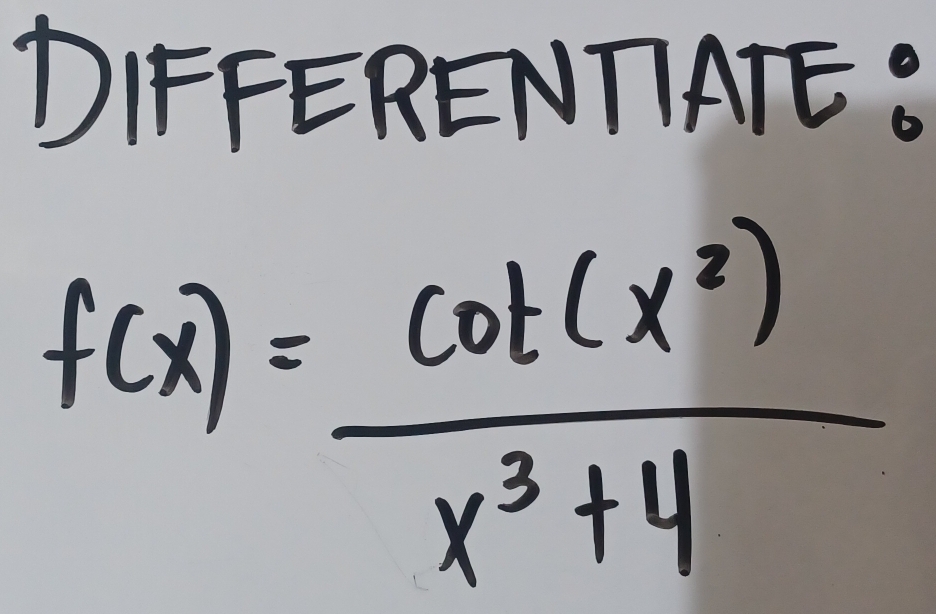 DIFFERENTIATE:
f(x) = cot(x²)
x³ + 4